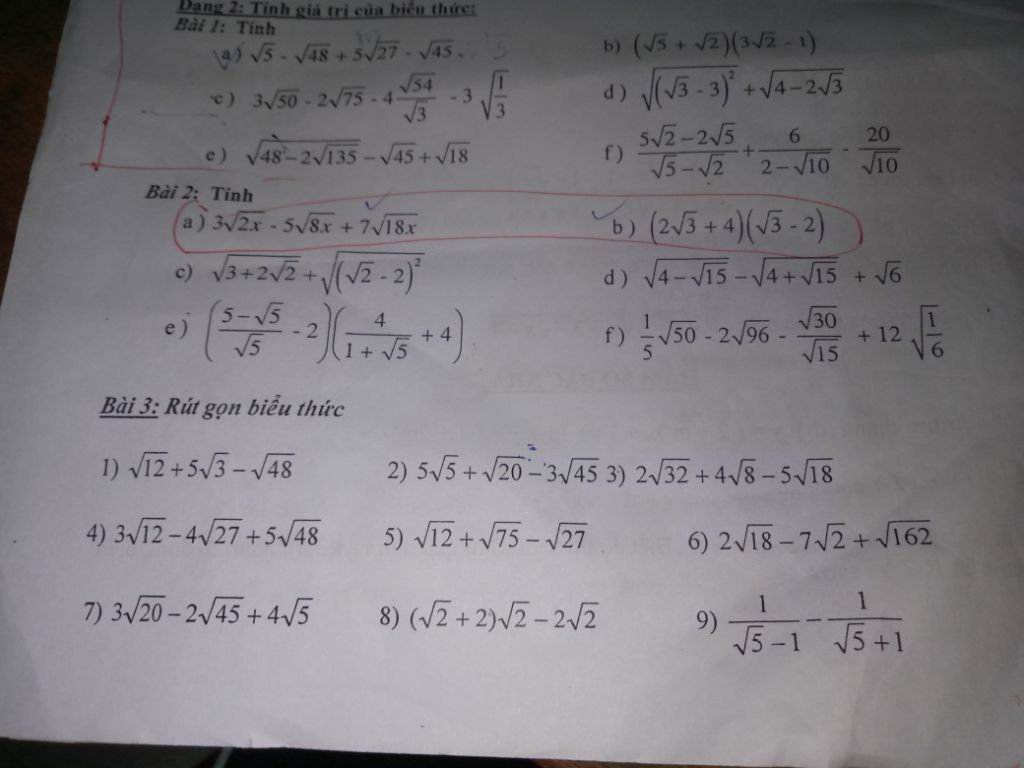 Dạng 2: Tính giá trị của biểu thức:
Bài 1: Tính
a) √5 - √48 + 5√27 - √45 b) (√5 + √2)(3√2 - 1)
c) 3√50 - 2√75 - 4 √54/√3 - 3√(1/3) d) √((√3 - 3)²) + √(4 - 2√3)
e) √(48 - 2√135) - √45 + √18 f) (5√2 - 2√5)/(√5 - √2) + 6/(2 - √10) - 20/√10
Bài 2: Tính
a) 3√2x - 5√8x + 7√18x b) (2√3 + 4)(√3 - 2)
c) √(3 + 2√2) + √((√2 - 2)²) d) √(4 - √15) - √(4 + √15) + √6
e) ((5 - √5)/√5 - 2)(4/(1 + √5) + 4) f) 1/5 √50 - 2√96 - √30/√15 + 12√(1/6)
Bài 3: Rút gọn biểu thức
1) √12 + 5√3 - √48 2) 5√5 + √20 - 3√45 3) 2√32 + 4√8 - 5√18
4) 3√12 - 4√27 + 5√48 5) √12 + √75 - √27 6) 2√18 - 7√2 + √162
7) 3√20 - 2√45 + 4√5 8) (√2 + 2)√2 - 2√2 9) 1/(√5 - 1) - 1/(√5 + 1)